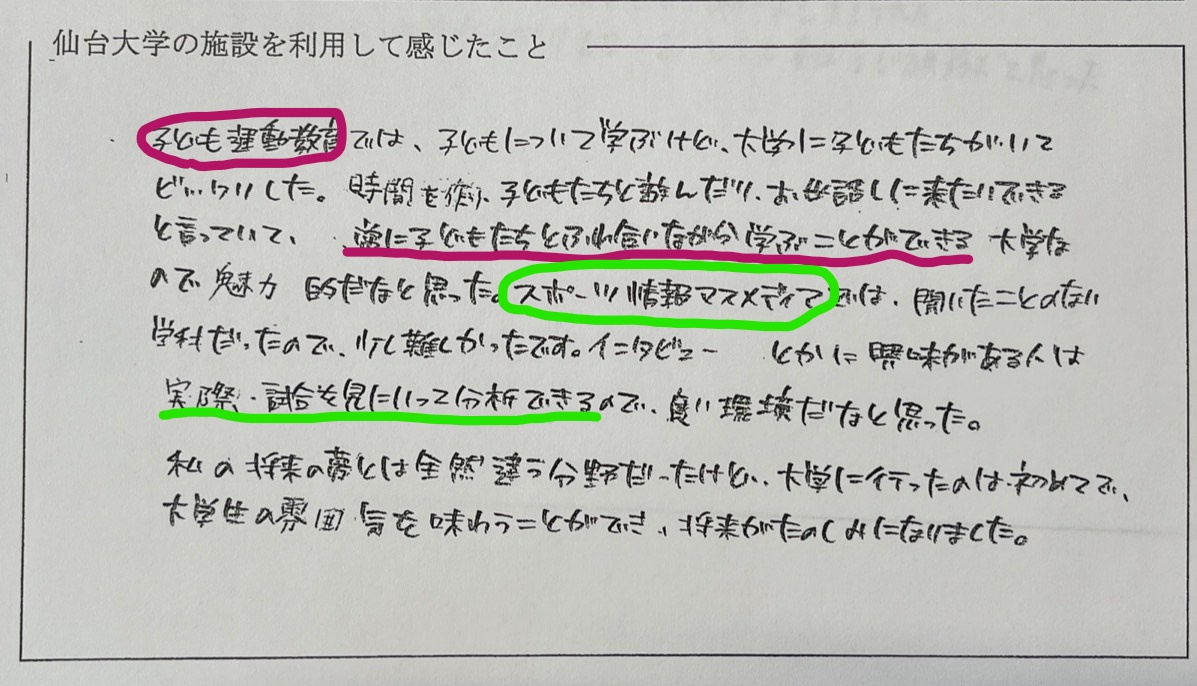 仙台大学の施設を利用して感じたこと
子ども運動教育では、子どもについて学ぶけど、大学に子どもたちがいて
びっくりした。時間を作り、子どもたちと遊んだり、お世話しに来たりできる
と言っていて、実際に子どもたちとふれ合いながら学ぶことができる大学な
ので魅力的だなと思った。スポーツ情報マスメディアでは、聞いたことのない
学科だったので、少し難しかったです。インタビューとかに興味がある人は
実際、試合を見にいって分析できるので、良い環境だなと思った。
私の将来の夢とは全然違う分野だったけど、大学に行ったのは初めてで、
大学生の雰囲気を味わうことができ、将来がたのしみになりました。